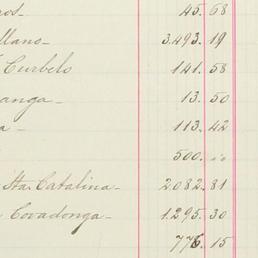 ros- 45. 68
llano- 3.493. 19
Curbelo 141. 58
anga- 13. 50
a- 113. 42
500.
Sta. Catalina- 2082. 81
Covadonga- 1.295. 30
776. 15